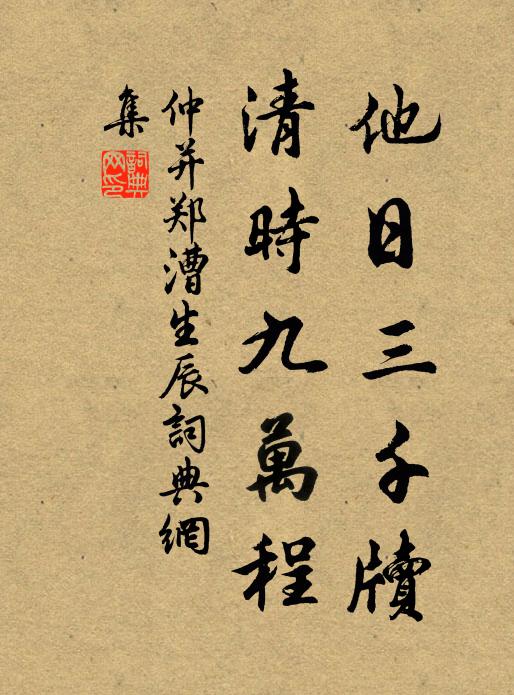 他日三千牘
清時九萬程
仲并郑漕生辰詞典網
集
詞典网印